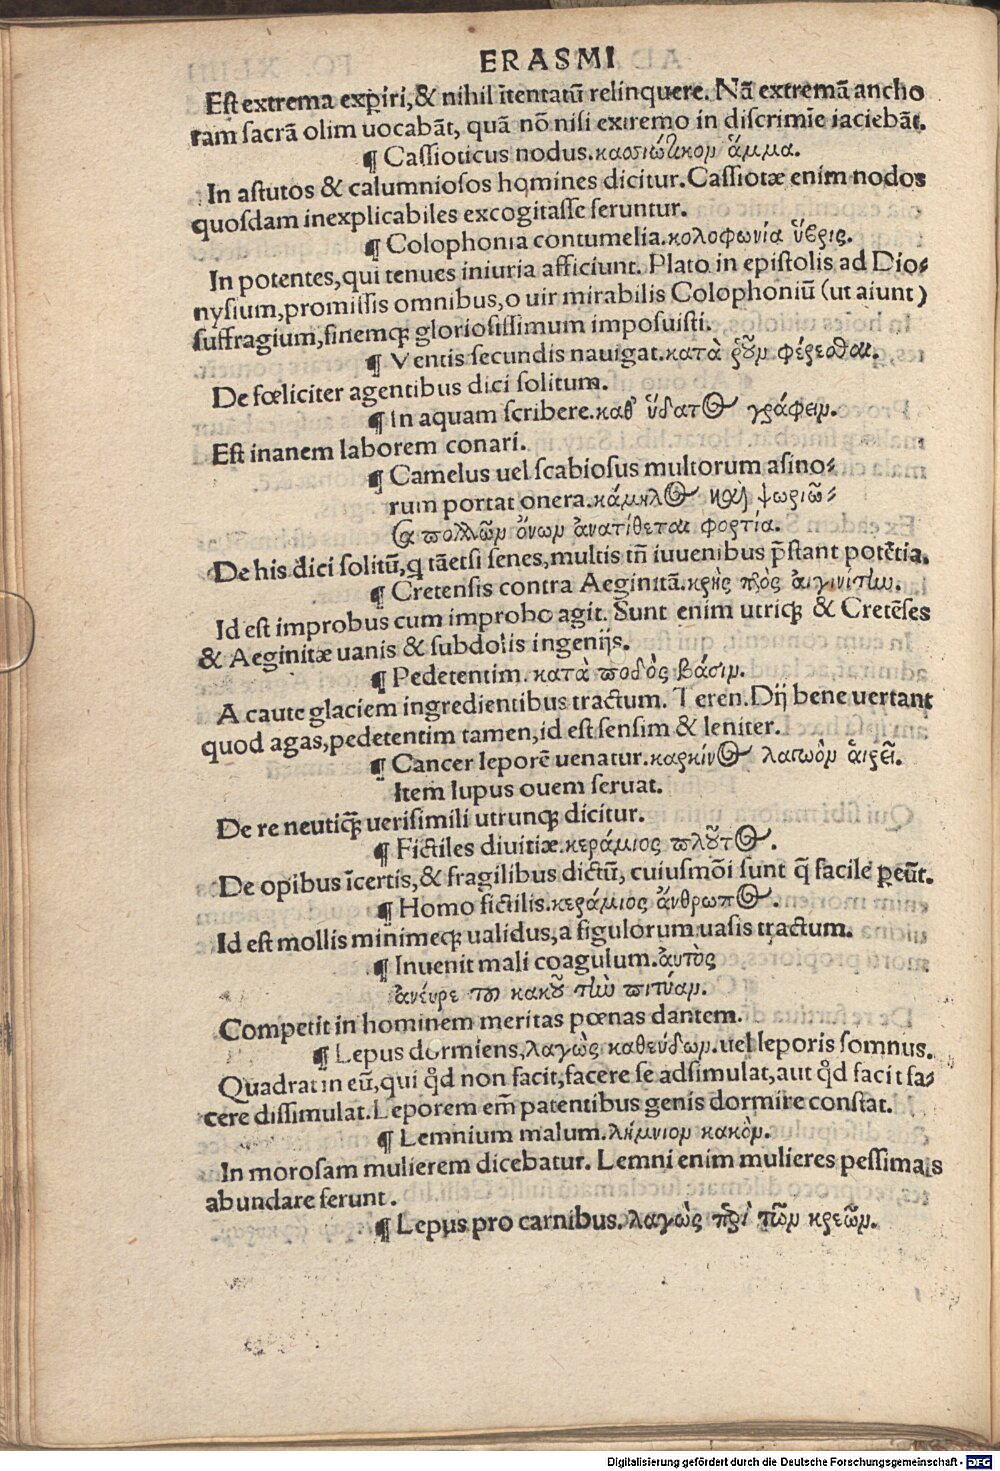 ERASMI
Est extrema experiri,& nihil ītentatū relinquere. Nā extremā ancho
ram sacrā olim uocabāt, quā nō nisi extremo in discrimīe iaciebāt.
¶ Cassioticus nodus.κασσιώτικομ ἅμμα.
In astutos & calumniosos homines dicitur. Cassiotæ enim nodos
quosdam inexplicabiles excogitasse feruntur.
¶ Colophonia contumelia.κολοφωνία ὕβρις.
In potentes,qui tenues iniuria afficiunt. Plato in epistolis ad Dio⸗
nysium,promissis omnibus,o uir mirabilis Colophoniū (ut aiunt)
suffragium,finemq; gloriosissimum imposuisti.
¶ Ventis secundis nauigat.κατὰ ῥοῦμ φέρεσθαι.
De fœliciter agentibus dici solitum.
¶ In aquam scribere.καθ' ὕδατος γράφειμ.
Est inanem laborem conari.
¶ Camelus uel scabiosus multorum asino⸗
rum portat onera.κάμηλος καὶ ψωριῶ⸗
σα πολλῶμ ὄνωμ ἀνατίθεται φορτία.
De his dici solitū,q tāetsi senes,multis tñ iuuenibus p̄stant potētia.
¶ Cretensis contra Aeginitā.κρὴς πρὸς αἰγινίτην.
Id est improbus cum improbo agit. Sunt enim utriq; & Cretēses
& Aeginitæ uanis & subdolis ingenijs.
¶ Pedetentim. κατὰ ποδὸς βάσιμ.
A caute glaciem ingredientibus tractum. Teren. Dij bene uertant
quod agas,pedetentim tamen,id est sensim & leniter.
¶ Cancer leporē uenatur.καρκίνος λαγωὸμ αἱρεῖ.
Item lupus ouem seruat.
De re neutiq̄; uerisimili utrunq; dicitur.
¶ Fictiles diuitiæ.κεράμιος πλοῦτος.
De opibus īcertis,& fragilibus dictū, cuiusmōi sunt q̄ facile peūt.
¶ Homo fictilis.κεράμιος ἄνθρωπος.
Id est mollis minimeq; ualidus,a figulorum uasis tractum.
¶ Inuenit mali coagulum.αὐτὸς
ἀνέυρε τοῦ κακοῦ τὴν πιτύαμ.
Competit in hominem meritas pœnas dantem.
¶ Lepus dormiens,λαγὼς καθεύδωμ.uel leporis somnus.
Quadrat in eū,qui qd́ non facit,facere se adsimulat,aut qd́ facit fa⸗
cere dissimulat. Leporem em̄ patentibus genis dormire constat.
¶ Lemnium malum.λήμνιομ κακὸμ.
In morosam mulierem dicebatur. Lemni enim mulieres pessimas
abundare ferunt.
¶ Lepus pro carnibus.λαγὼς περὶ τῶμ κρεῶμ.
Digitalisierung gefördert durch die Deutsche Forschungsgemeinschaft - DFG